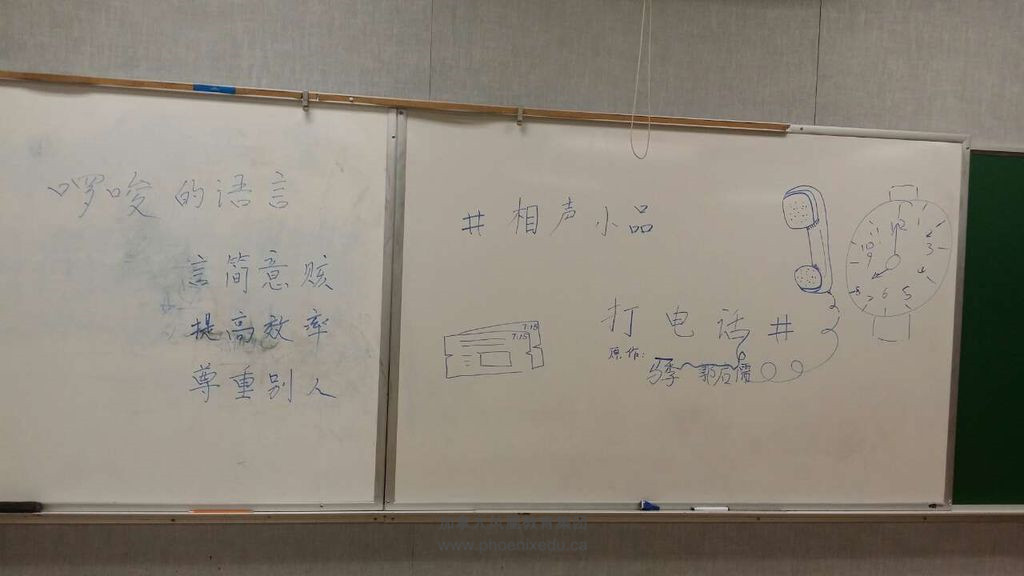 啰唆的语言
言简意赅
提高效率
尊重别人
# 相声小品
打电话 #
原作:
马季 郭启儒
7:15
7:15
12
1
2
3
4
5
6
7
8
9
10
11
www.phoenixedu.ca